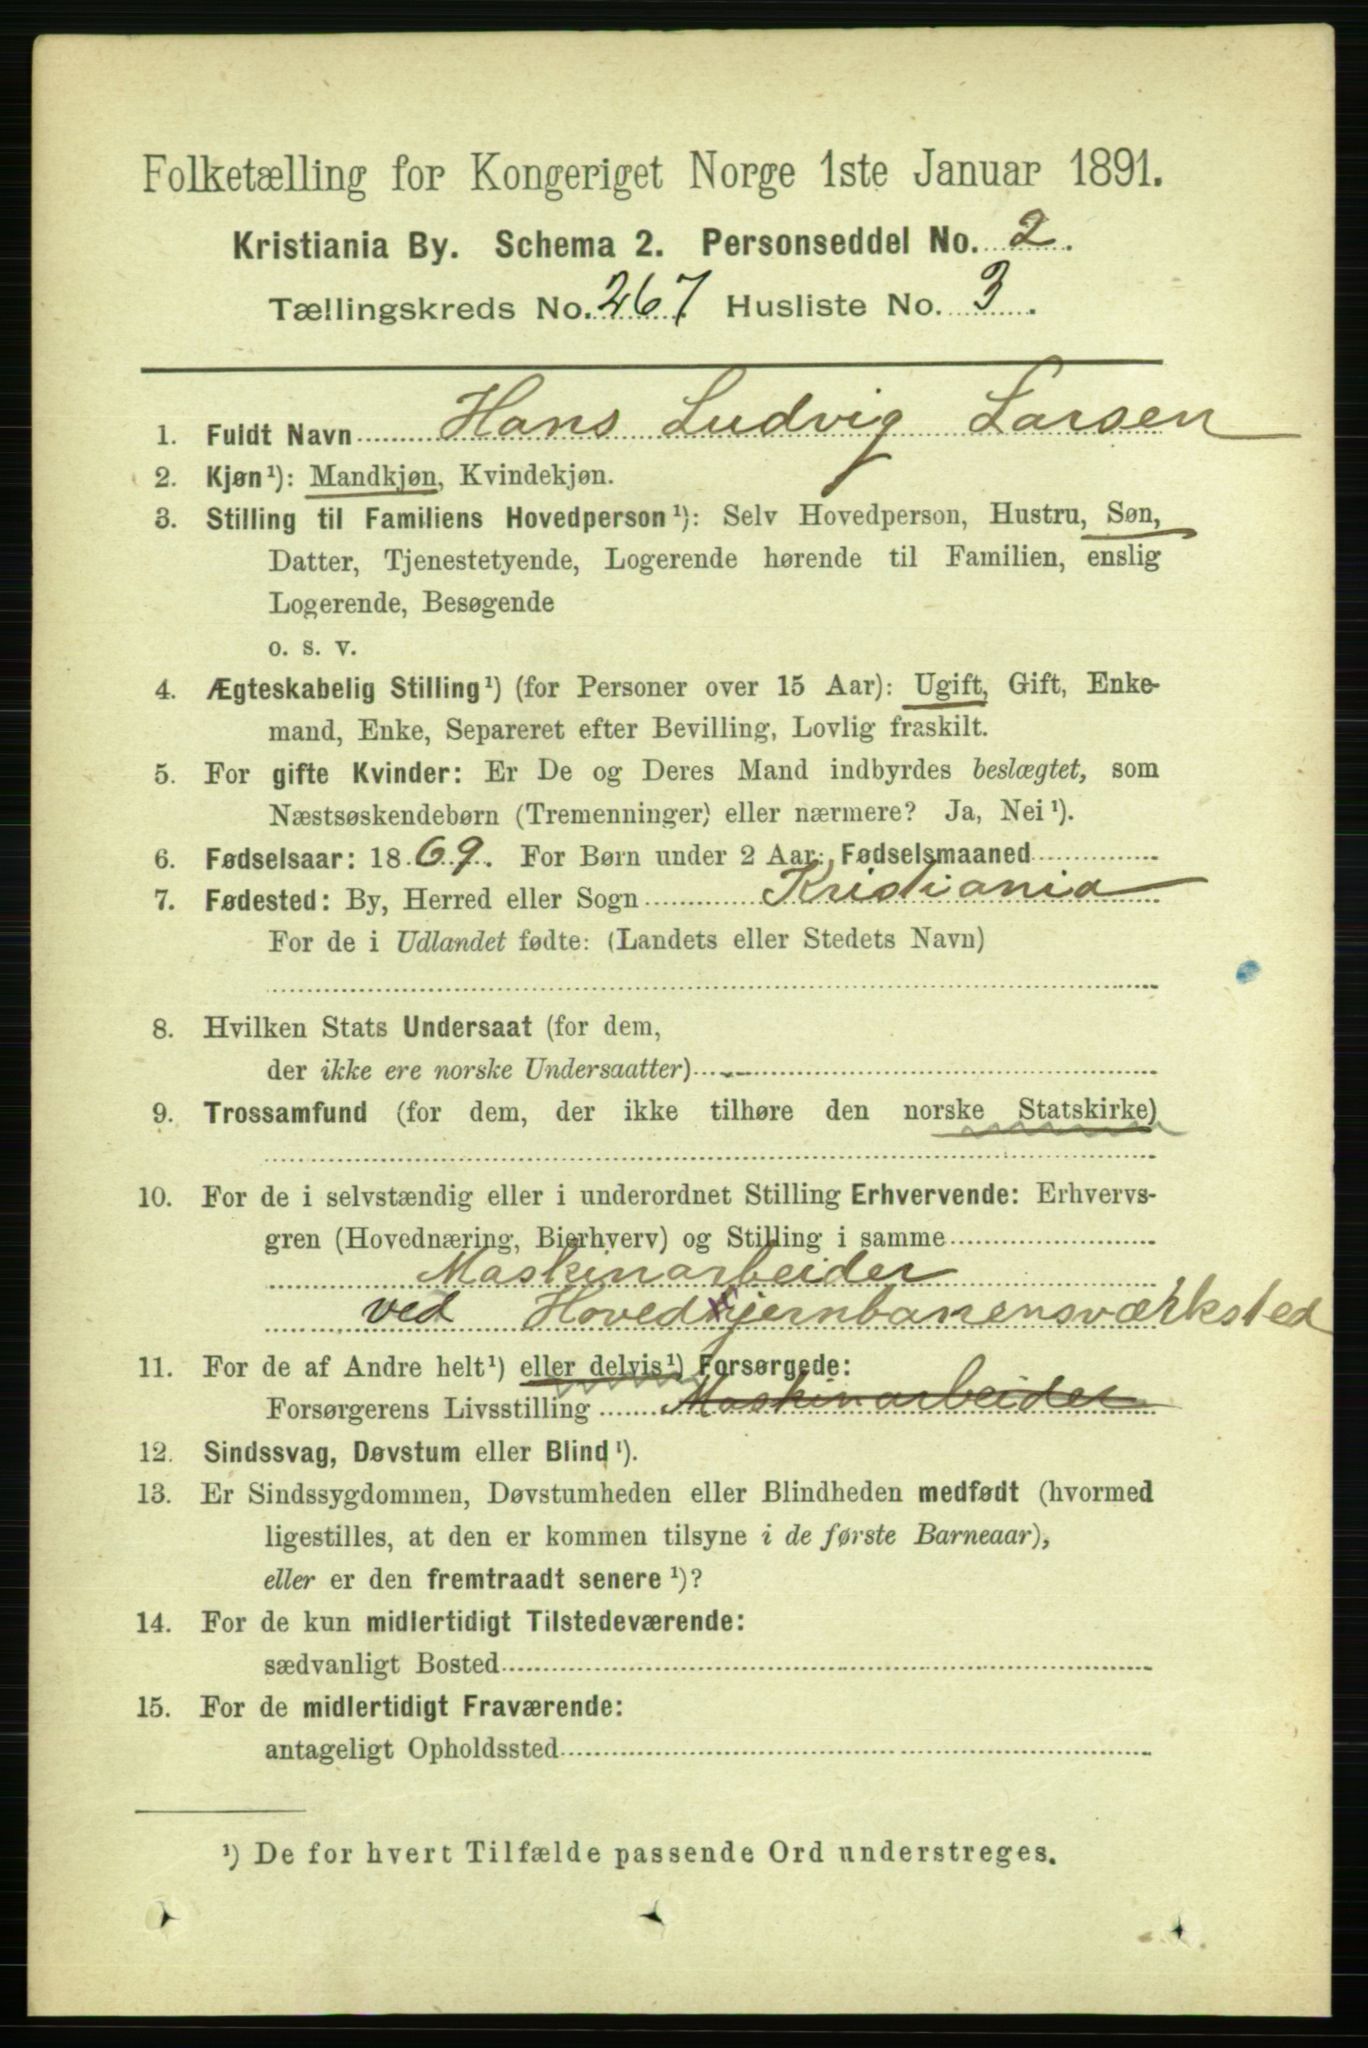 Folketælling for Kongeriget Norge 1ste Januar 1891.
Kristiania By. Schema 2. Personseddel No. 2.
Tællingskreds No. 267 Husliste No. 3.
1. Fuldt Navn Hans Ludvig Larsen
2. Kjøn¹): Mandkjøn, Kvindekjøn.
3. Stilling til Familiens Hovedperson¹): Selv Hovedperson, Hustru, Søn,
Datter, Tjenestetyende, Logerende hørende til Familien, enslig
Logerende, Besøgende
o. s. v.
4. Ægteskabelig Stilling¹) (for Personer over 15 Aar): Ugift, Gift, Enke-
mand, Enke, Separeret efter Bevilling, Lovlig fraskilt.
5. For gifte Kvinder: Er De og Deres Mand indbyrdes beslægtet, som
Næstsøskendebørn (Tremenninger) eller nærmere? Ja, Nei¹).
6. Fødselsaar: 1869. For Børn under 2 Aar: Fødselsmaaned
7. Fødested: By, Herred eller Sogn Kristiania
For de i Udlandet fødte: (Landets eller Stedets Navn)
8. Hvilken Stats Undersaat (for dem,
der ikke ere norske Undersaatter)
9. Trossamfund (for dem, der ikke tilhøre den norske Statskirke)
10. For de i selvstændig eller i underordnet Stilling Erhvervende: Erhvervs-
gren (Hovednæring, Bierhverv) og Stilling i samme
Maskinarbeider
ved Hovedjernbanensværksted
11. For de af Andre helt¹) eller delvis¹) Forsørgede:
Forsørgerens Livsstilling Maskinarbeider
12. Sindssvag, Døvstum eller Blind¹).
13. Er Sindssygdommen, Døvstumheden eller Blindheden medfødt (hvormed
ligestilles, at den er kommen tilsyne i de første Barneaar),
eller er den fremtraadt senere¹)?
14. For de kun midlertidigt Tilstedeværende:
sædvanligt Bosted
15. For de midlertidigt Fraværende:
antageligt Opholdssted
¹) De for hvert Tilfælde passende Ord understreges.